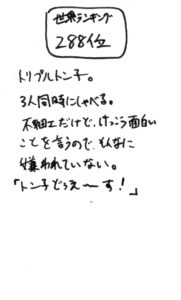 世界ランキング
288位
トリプルトン子。
3人同時にしゃべる。
不細工だけど、けっこう面白い
ことを言うので、そんなに
嫌われていない。
「トン子どぅえ〜す!」